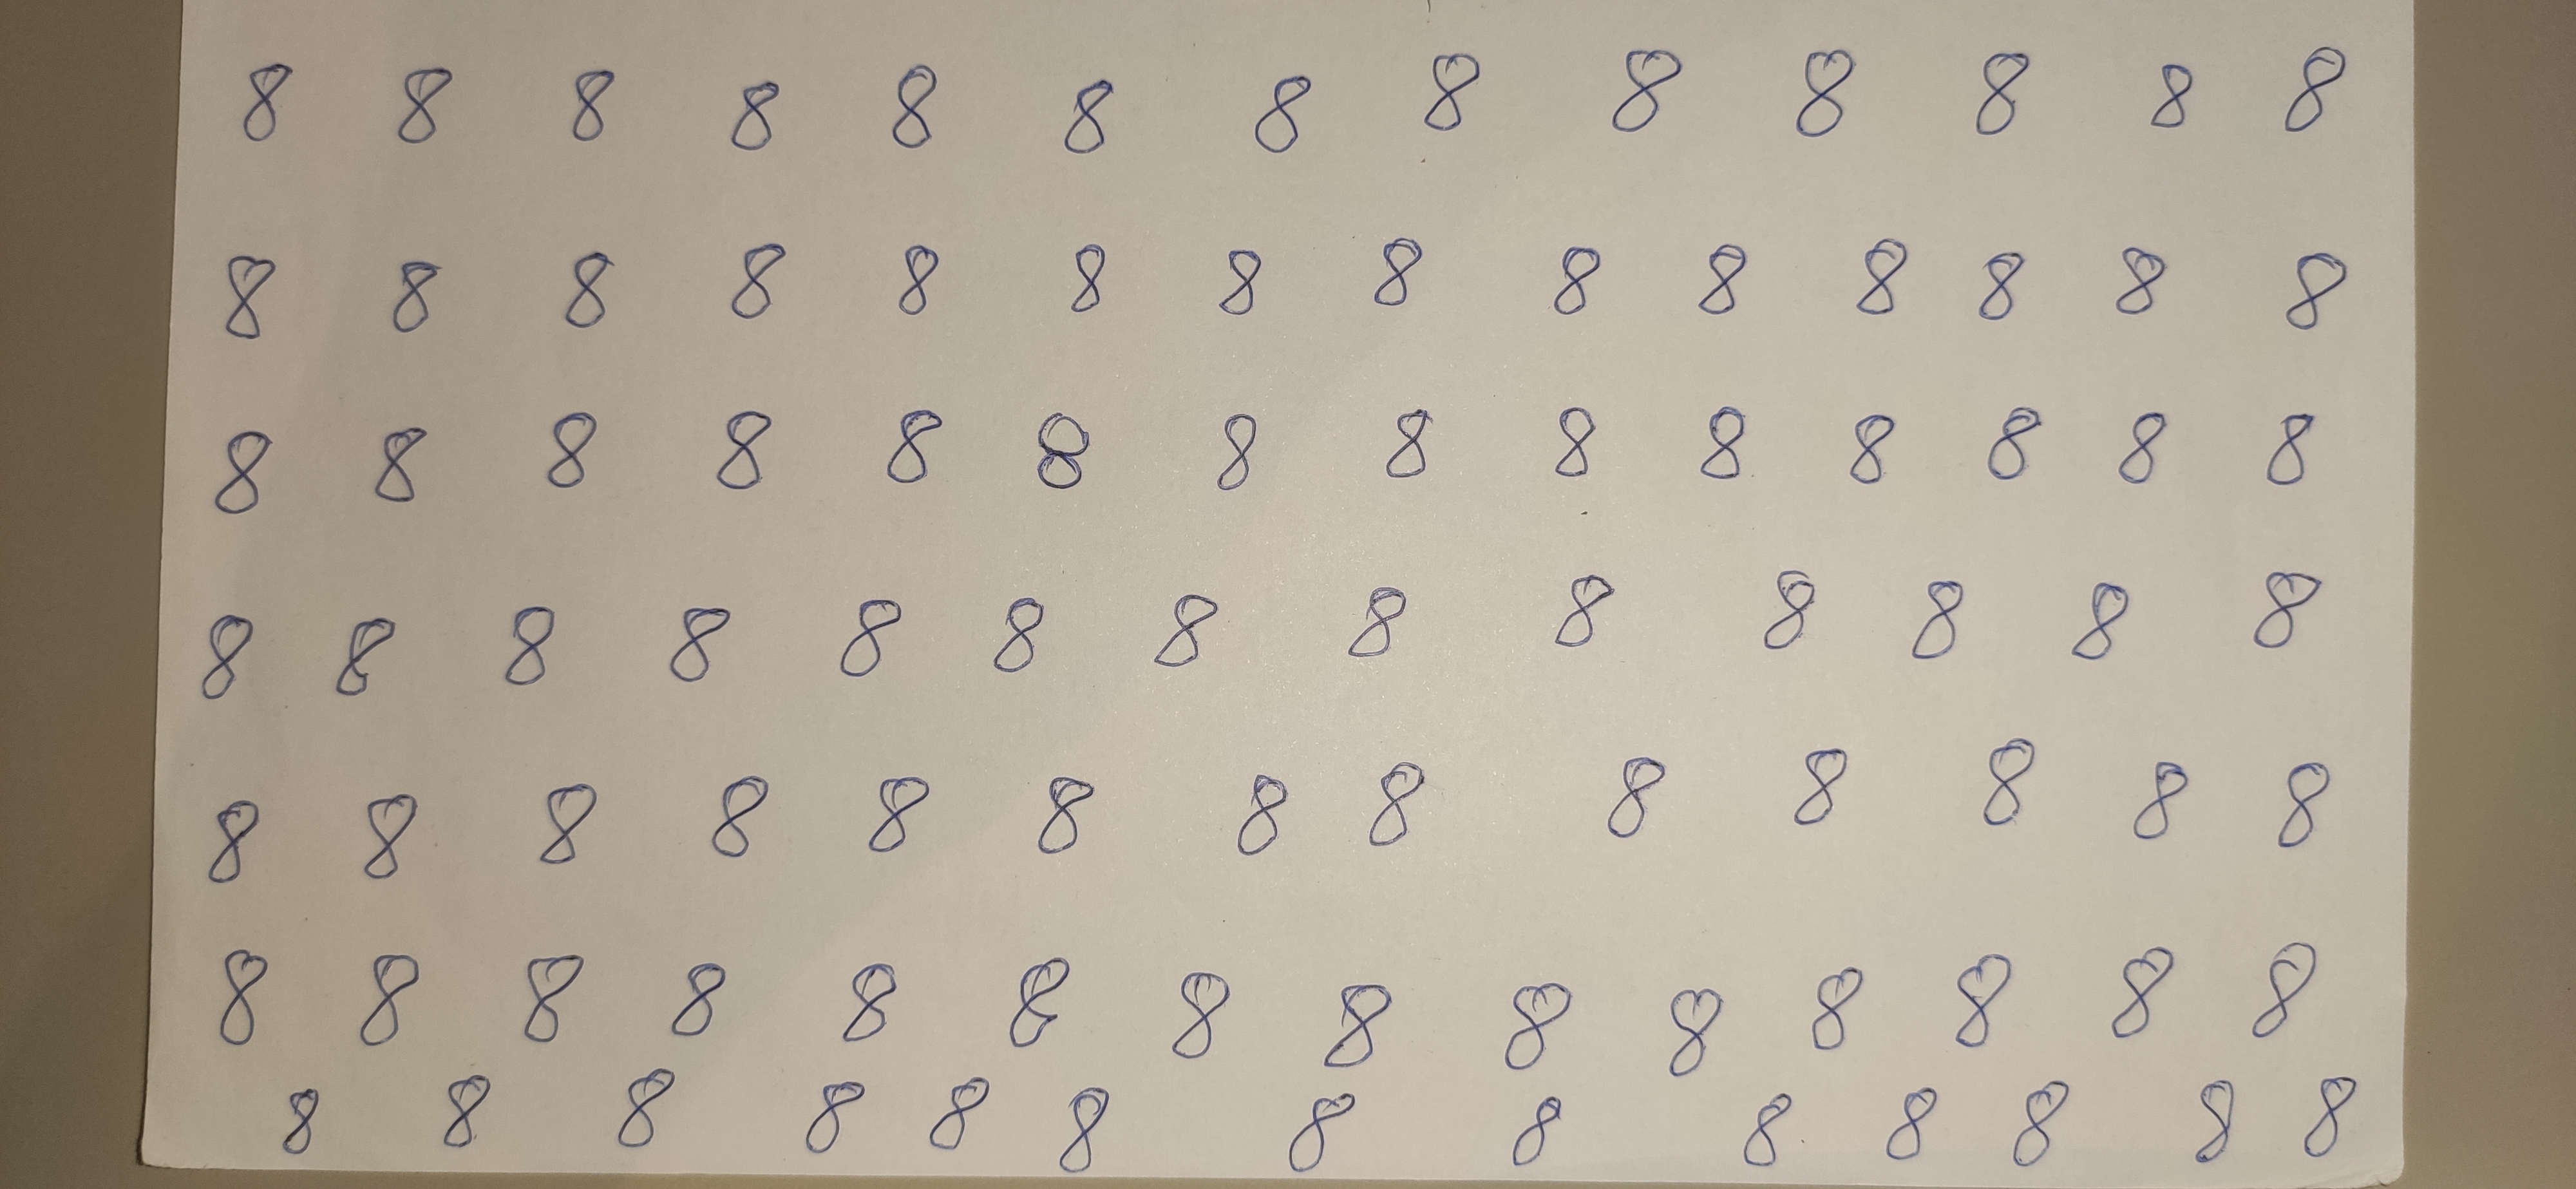 8 8 8 8 8 8 8 8 8 8 8 8 8
8 8 8 8 8 8 8 8 8 8 8 8 8 8
8 8 8 8 8 8 8 8 8 8 8 8 8 8
8 8 8 8 8 8 8 8 8 8 8 8 8
8 8 8 8 8 8 8 8 8 8 8 8 8
8 8 8 8 8 8 8 8 8 8 8 8 8 8
8 8 8 8 8 8 8 8 8 8 8 8 8